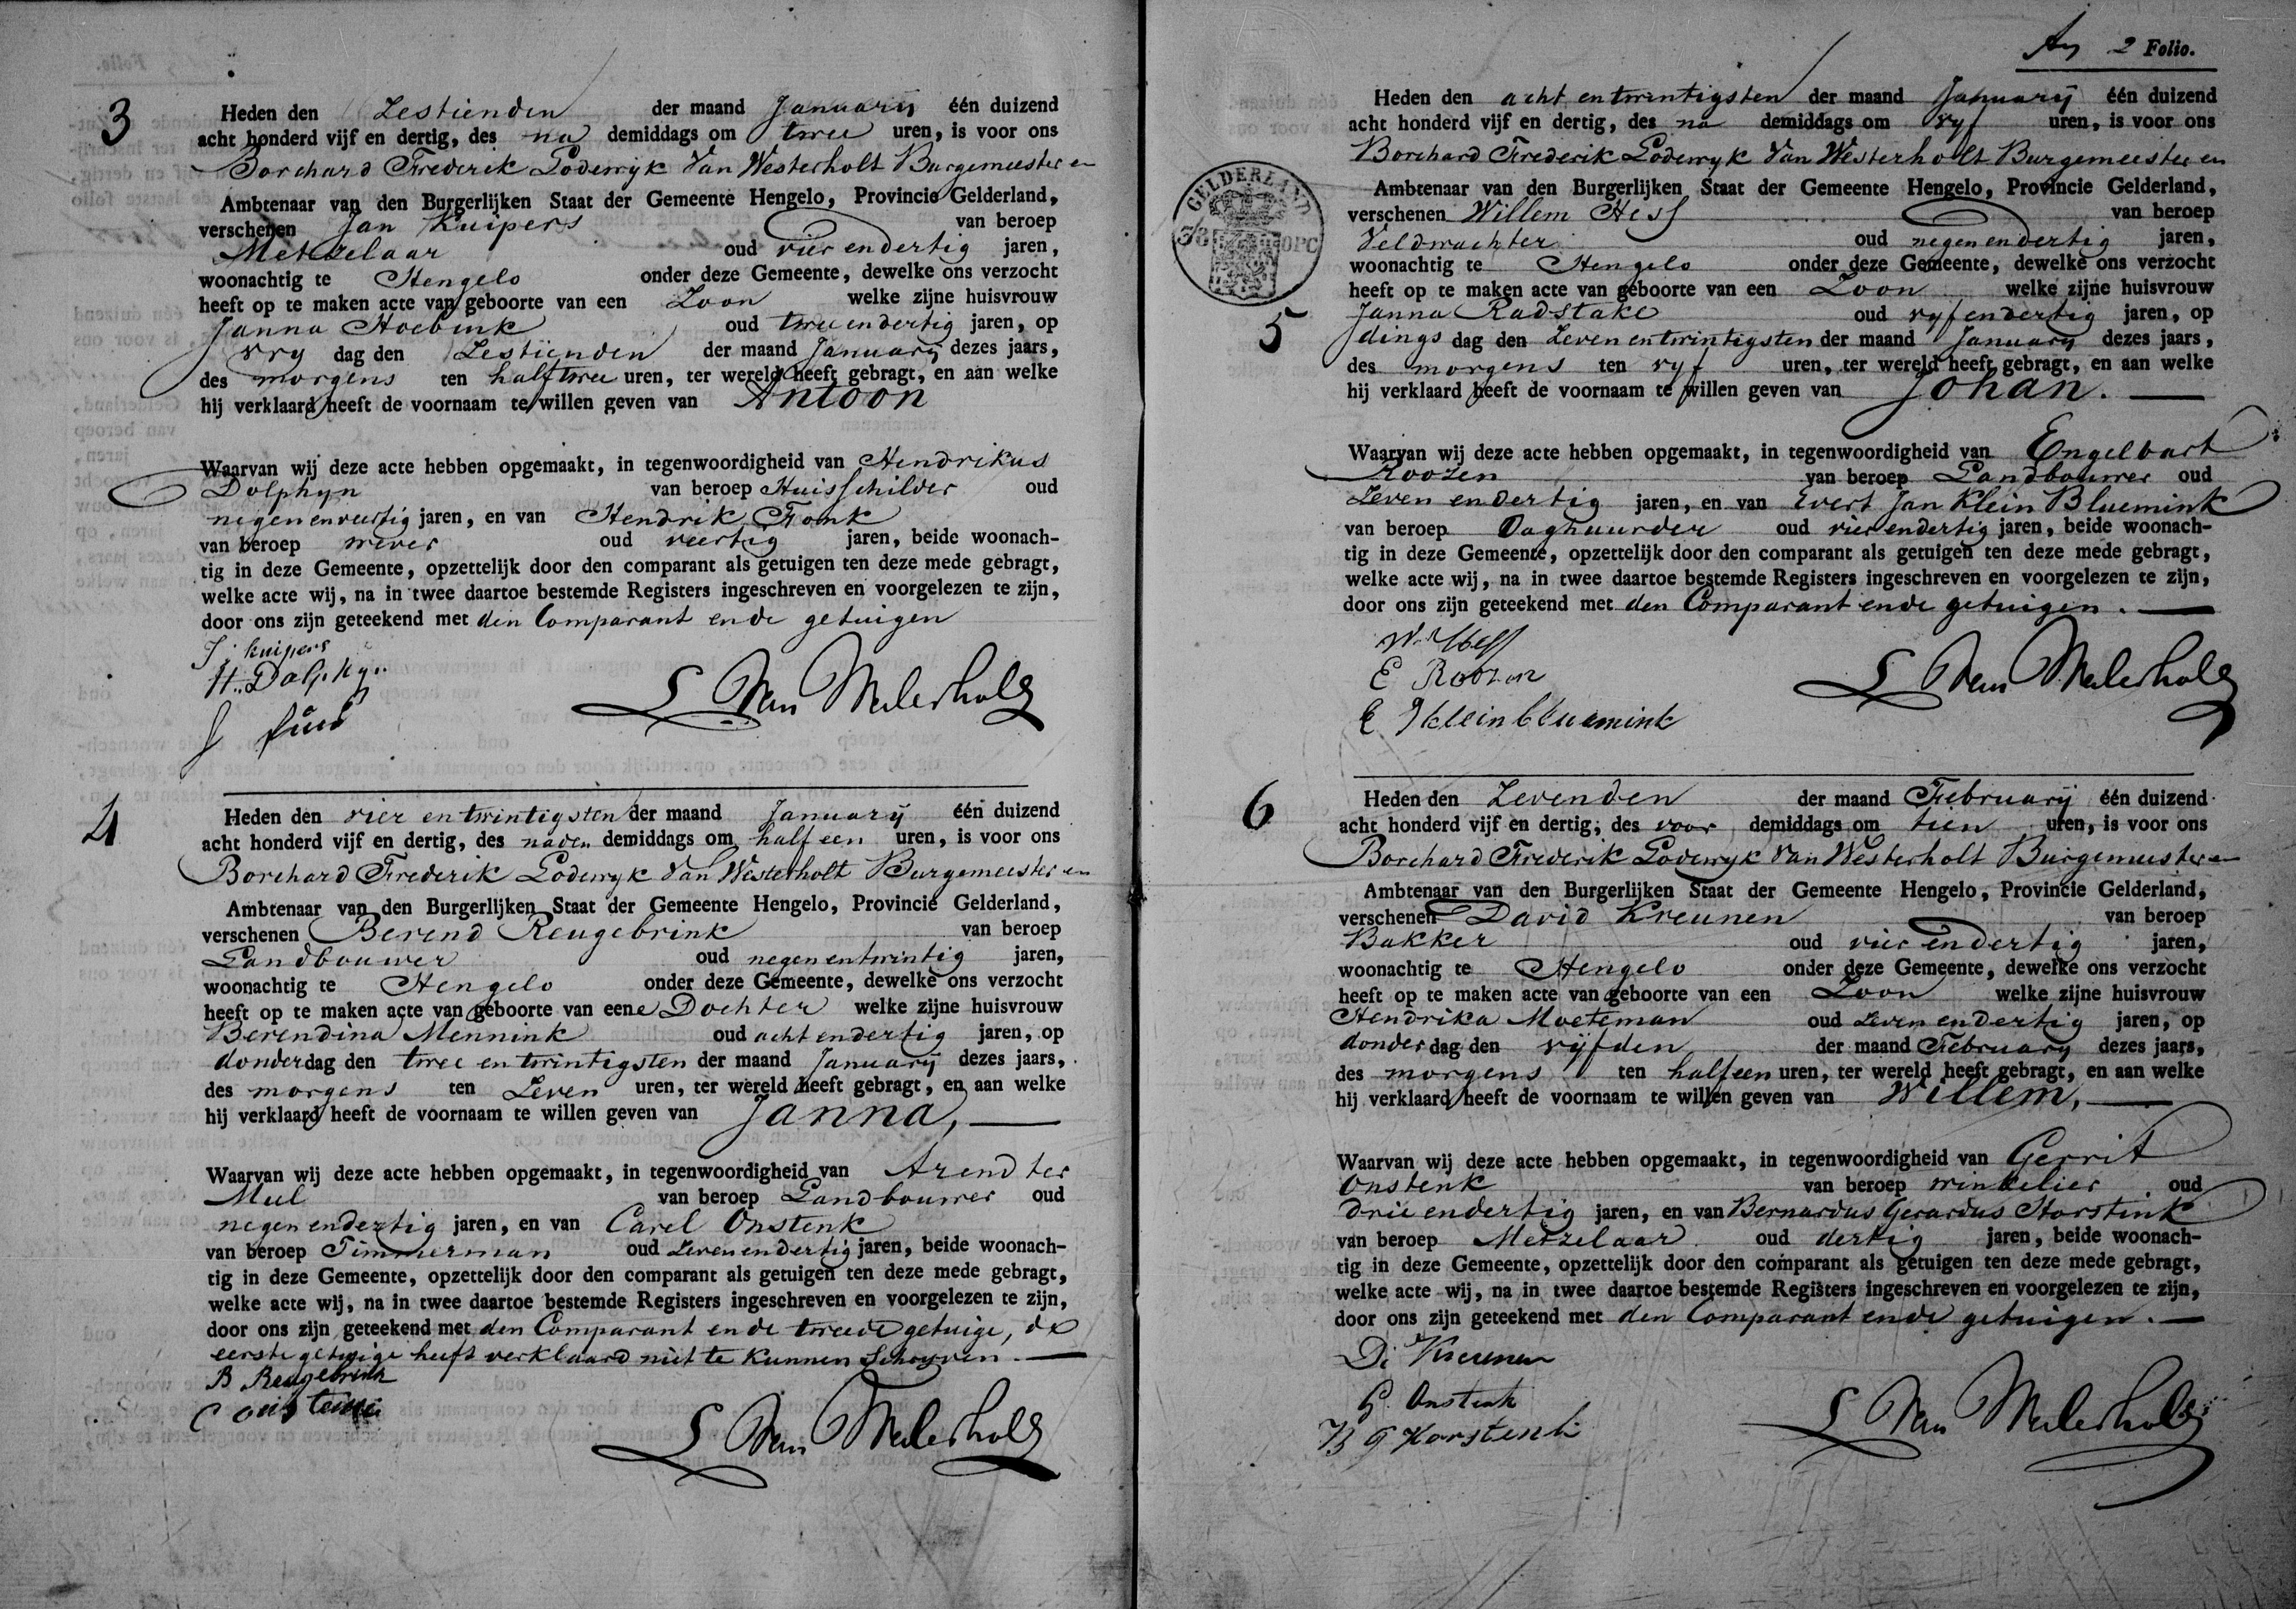 3
Heden den Zestienden der maand January één duizend
acht honderd vijf en dertig, des na demiddags om twee uren, is voor ons
Borchard Frederik Lodewyk Van Westerholt Burgemeester en
Ambtenaar van den Burgerlijken Staat der Gemeente Hengelo, Provincie Gelderland,
verschenen Jan Kuipers van beroep
Metzelaar oud vier en dertig jaren,
woonachtig te Hengelo onder deze Gemeente, dewelke ons verzocht
heeft op te maken acte van geboorte van een Zoon welke zijne huisvrouw
Janna Hoebink oud twee en dertig jaren, op
vry dag den Zestienden der maand January dezes jaars,
des morgens ten half twee uren, ter wereld heeft gebragt, en aan welke
hij verklaard heeft de voornaam te willen geven van Antoon
Waarvan wij deze acte hebben opgemaakt, in tegenwoordigheid van Hendrikus
Dolphyn van beroep Huisschilder oud
negen en veertig jaren, en van Hendrik Fronk
van beroep wever oud veertig jaren, beide woonach-
tig in deze Gemeente, opzettelijk door den comparant als getuigen ten deze mede gebragt,
welke acte wij, na in twee daartoe bestemde Registers ingeschreven en voorgelezen te zijn,
door ons zijn geteekend met den Comparant en de getuigen
J: kuipers
H. Dolphyn
L Van Westerholt
4
Heden den vier en twintigsten der maand January één duizend
acht honderd vijf en dertig, des naden demiddags om half een uren, is voor ons
Borchard Frederik Lodewyk Van Westerholt Burgemeester en
Ambtenaar van den Burgerlijken Staat der Gemeente Hengelo, Provincie Gelderland,
verschenen Berend Reugebrink van beroep
Landbouwer oud negen en twintig jaren,
woonachtig te Hengelo onder deze Gemeente, dewelke ons verzocht
heeft op te maken acte van geboorte van eene Dochter welke zijne huisvrouw
Berendina Mennink oud acht en dertig jaren, op
donderdag den twee en twintigsten der maand January dezes jaars,
des morgens ten Zeven uren, ter wereld heeft gebragt, en aan welke
hij verklaard heeft de voornaam te willen geven van Janna,
Waarvan wij deze acte hebben opgemaakt, in tegenwoordigheid van Arend ter
Mul van beroep Landbouwer oud
negen en dertig jaren, en van Carel Onstenk
van beroep Timmerman oud Zeven en dertig jaren, beide woonach-
tig in deze Gemeente, opzettelijk door den comparant als getuigen ten deze mede gebragt,
welke acte wij, na in twee daartoe bestemde Registers ingeschreven en voorgelezen te zijn,
door ons zijn geteekend met den Comparant en de tweede getuige, de
eerste getuige heeft verklaard niet te kunnen Schryven.
B Reugebrink
L Van Westerholt
2 Folio.
Heden den acht en twintigsten der maand January één duizend
acht honderd vijf en dertig, des na demiddags om vyf uren, is voor ons
Borchard Frederik Lodewyk Van Westerholt Burgemeester en
Ambtenaar van den Burgerlijken Staat der Gemeente Hengelo, Provincie Gelderland,
GELDERLAND
verschenen Willem Hess van beroep
Veldwachter oud negen en dertig jaren,
woonachtig te Hengelo onder deze Gemeente, dewelke ons verzocht
heeft op te maken acte van geboorte van een Zoon welke zijne huisvrouw
5
Janna Radstake oud vyf en dertig jaren, op
dings dag den Zeven en twintigsten der maand January dezes jaars,
des morgens ten vyf uren, ter wereld heeft gebragt, en aan welke
hij verklaard heeft de voornaam te willen geven van Johan.
Waarvan wij deze acte hebben opgemaakt, in tegenwoordigheid van Engelbart
Roozen van beroep Landbouwer oud
Zeven en dertig jaren, en van Evert Jan Klein Bluemink
van beroep Daghuurder oud vier en dertig jaren, beide woonach-
tig in deze Gemeente, opzettelijk door den comparant als getuigen ten deze mede gebragt,
welke acte wij, na in twee daartoe bestemde Registers ingeschreven en voorgelezen te zijn,
door ons zijn geteekend met den Comparant en de getuigen.
W. Hess
E Roozen
E J klein bluemink
L Van Westerholt
6
Heden den Zevenden der maand February één duizend
acht honderd vijf en dertig, des voor demiddags om tien uren, is voor ons
Borchard Frederik Lodewyk Van Westerholt Burgemeester en
Ambtenaar van den Burgerlijken Staat der Gemeente Hengelo, Provincie Gelderland,
verschenen David Kreunen van beroep
Bakker oud vier en dertig jaren,
woonachtig te Hengelo onder deze Gemeente, dewelke ons verzocht
heeft op te maken acte van geboorte van een Zoon welke zijne huisvrouw
Hendrika Moeteman oud Zeven en dertig jaren, op
donderdag den vyfden der maand February dezes jaars,
des morgens ten half een uren, ter wereld heeft gebragt, en aan welke
hij verklaard heeft de voornaam te willen geven van Willem,
Waarvan wij deze acte hebben opgemaakt, in tegenwoordigheid van Gerrit
Onstenk van beroep winkelier oud
drie en dertig jaren, en van Bernardus Gerardus Horstink
van beroep Metzelaar oud dertig jaren, beide woonach-
tig in deze Gemeente, opzettelijk door den comparant als getuigen ten deze mede gebragt,
welke acte wij, na in twee daartoe bestemde Registers ingeschreven en voorgelezen te zijn,
door ons zijn geteekend met den Comparant en de getuigen.
D: Kreunen
G. Onstenk
B G Horstenk
L Van Westerholt